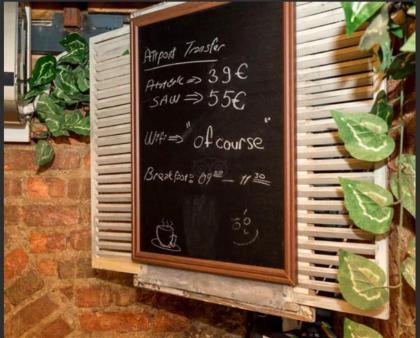 Airport Transfer
Atatürk ⇒ 39€
SAW ⇒ 55€
Wifi ⇒ "of course"
Breakfast 09:00 - 11:30